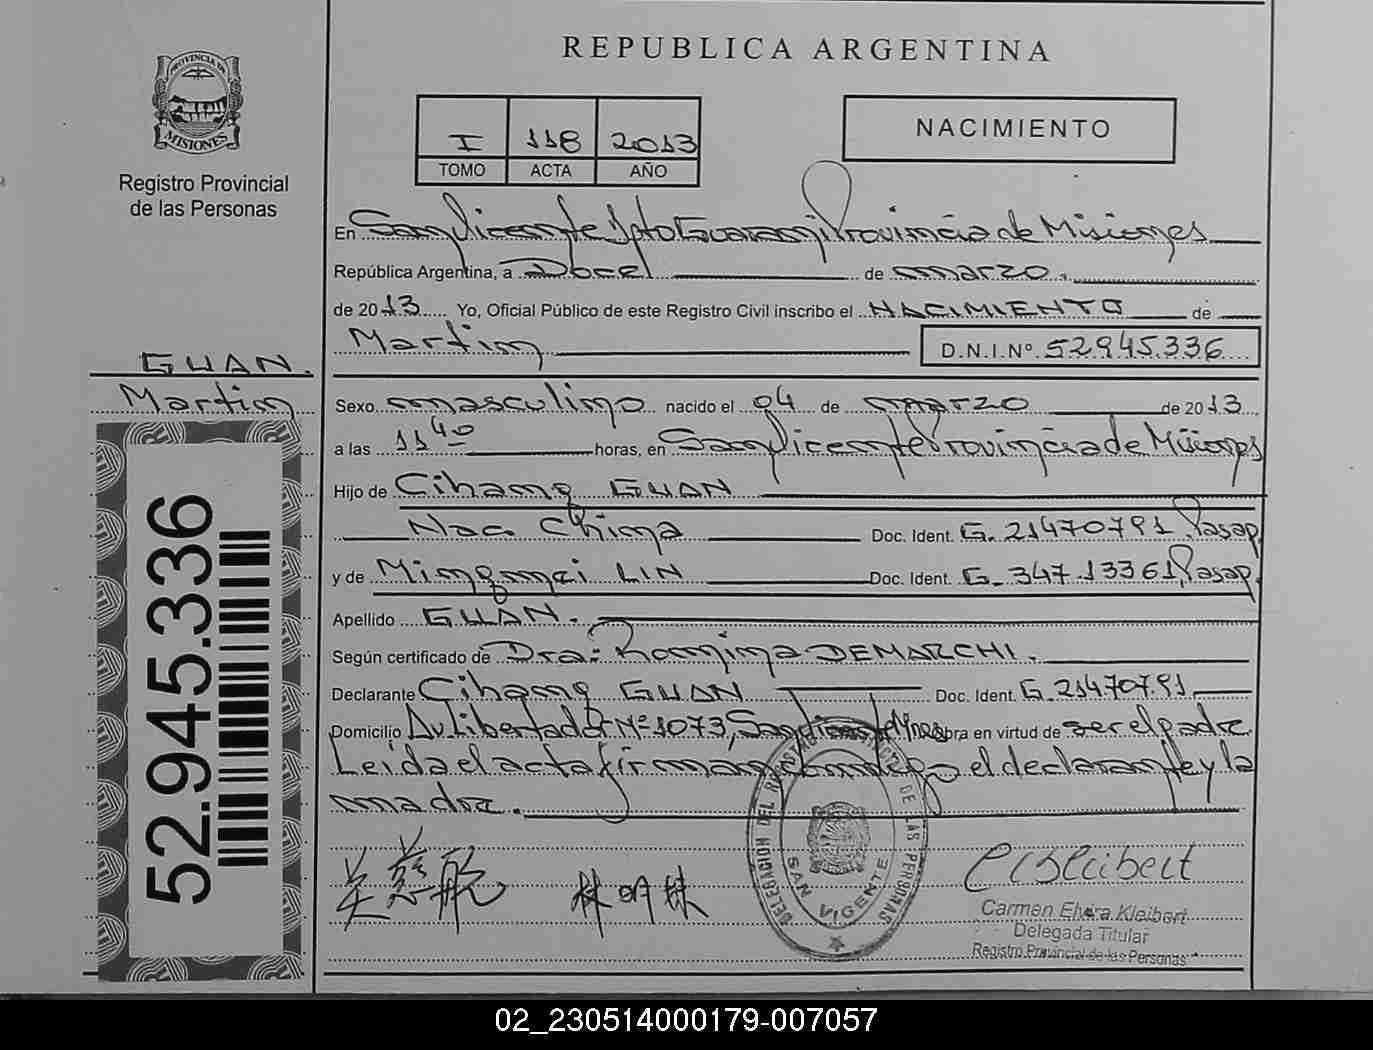 REPUBLICA ARGENTINA
PROVINCIA DE
MISIONES
Registro Provincial
de las Personas
I 118 2013
TOMO ACTA AÑO
NACIMIENTO
En San Vicente Dpto Guarani Provincia de Misiones
República Argentina, a Doce de marzo
de 2013 Yo, Oficial Público de este Registro Civil inscribo el NACIMIENTO de
Martin D.N.I.Nº 52.945.336
GUAN.
Martin
Sexo masculino nacido el 04 de marzo de 2013
a las 11 40 horas, en San Vicente Provincia de Misiones
Hijo de Cihang GUAN
Nac. China Doc. Ident. G. 21470791, Pasap.
y de Mingmei LIN Doc. Ident. G. 34713361, Pasap.
Apellido GUAN.
Según certificado de Dra: Romina DEMARCHI.
Declarante Cihang GUAN Doc. Ident. G. 21470791
Domicilio Av. Libertador Nº 1073, San Vicente Mnes obra en virtud de ser el padre
Leida el acta firman conmigo el declarante y la
madre.
52.945.336
林明妹
DELEGACION DEL REGISTRO PROVINCIAL DE LAS PERSONAS
SAN VICENTE
Carmen Elvira Kleibert
Delegada Titular
Registro Provincial de las Personas
02_230514000179-007057